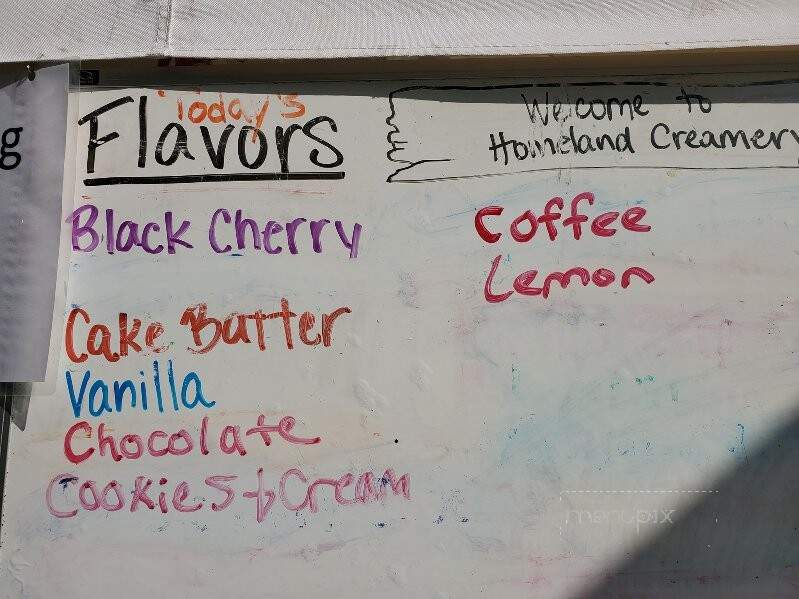 g
Today's
Flavors
Welcome to
Homeland Creamery
Black Cherry
Cake Batter
Vanilla
Chocolate
Cookies + Cream
Coffee
Lemon
menupix